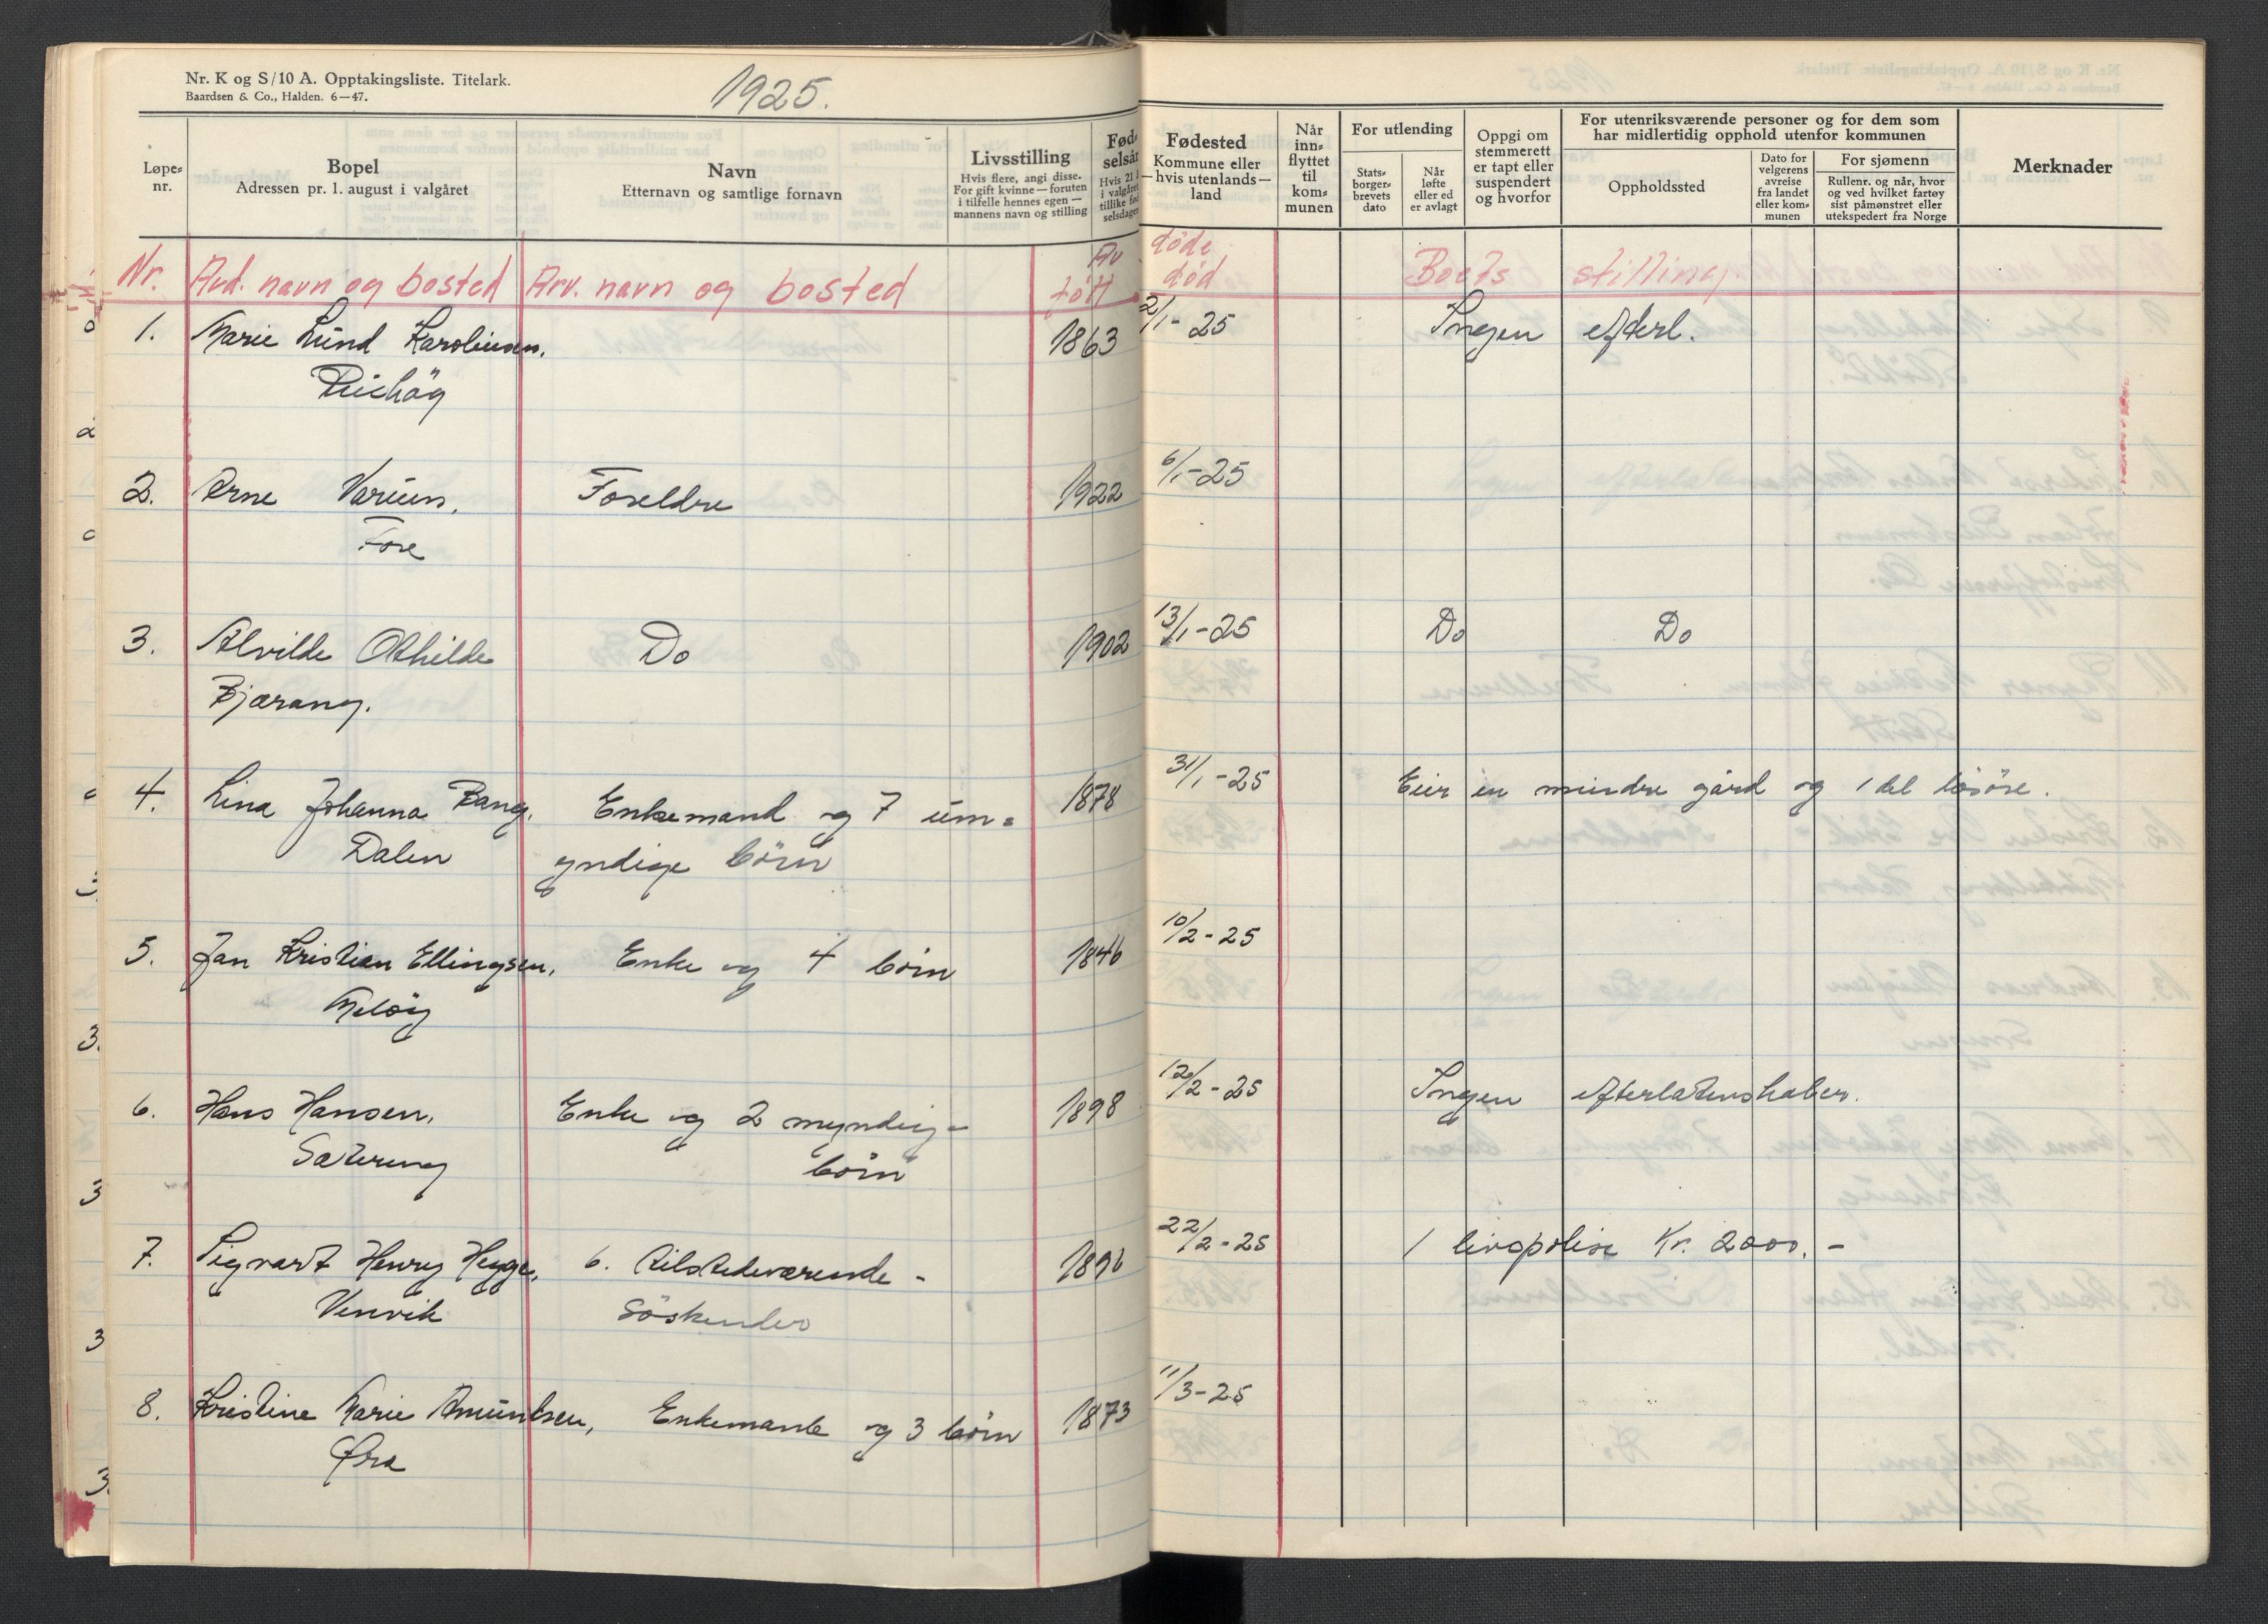 Nr. K og S/10 A. Opptakingsliste. Titelark.
Baardsen & Co., Halden. 6—47.
1925.
Løpe-
nr.
Bopel
Adressen pr. 1. august i valgåret
Navn
Etternavn og samtlige fornavn
Livsstilling
Hvis flere, angi disse.
For gift kvinne — foruten
i tilfelle hennes egen —
mannens navn og stilling
Fød-
selsår
Hvis 21 å
i valgåret
tillike fød
selsdagen
Fødested
Kommune eller
— hvis utenlands —
land
Når
inn-
flyttet
til
kom-
munen
For utlending
Stats-
borger-
brevets
dato
Når
løfte
eller ed
er avlagt
Oppgi om
stemmerett
er tapt eller
suspendert
og hvorfor
For utenriksværende personer og for dem som
har midlertidig opphold utenfor kommunen
Oppholdssted
Dato for
velgerens
avreise
fra landet
eller kom-
munen
For sjømenn
Rullenr. og når, hvor
og ved hvilket fartøy
sist påmønstret eller
utekspedert fra Norge
Merknader
Av døde
Nr. Avd. navn og bosted Arv. navn og bosted født død Boets stilling
1. Marie Lund Karolinsen, 1863 2/1-25 Ingen efterl.
2. Arne 1922 6/1-25
Foreldre
Fore
3. Alvilde Othilde Do 1902 13/1-25 Do Do
Bjærang.
4. Lina Johanna Bang, Enkemand og 7 um= 1878 31/1-25 Eier en mindre gård og 1 del lösöre.
Dalen yndige börn
5. Jan Kristian Ellingsen, Enke og 4 börn 1846 10/2-25
Melöy
6. Hans Hansen, Enke og 2 myndig- 1898 12/2-25 Ingen efterlatenskaber.
Sætereng börn
7. Sigvart Henry Hegge, 6. tilstedeværende - 1896 22/2-25 1 livspolise Kr. 2000.-
Venvik Söskender
8. Kristine Marie Amundsen, Enkemand og 3 börn 1873 11/3-25
Øra